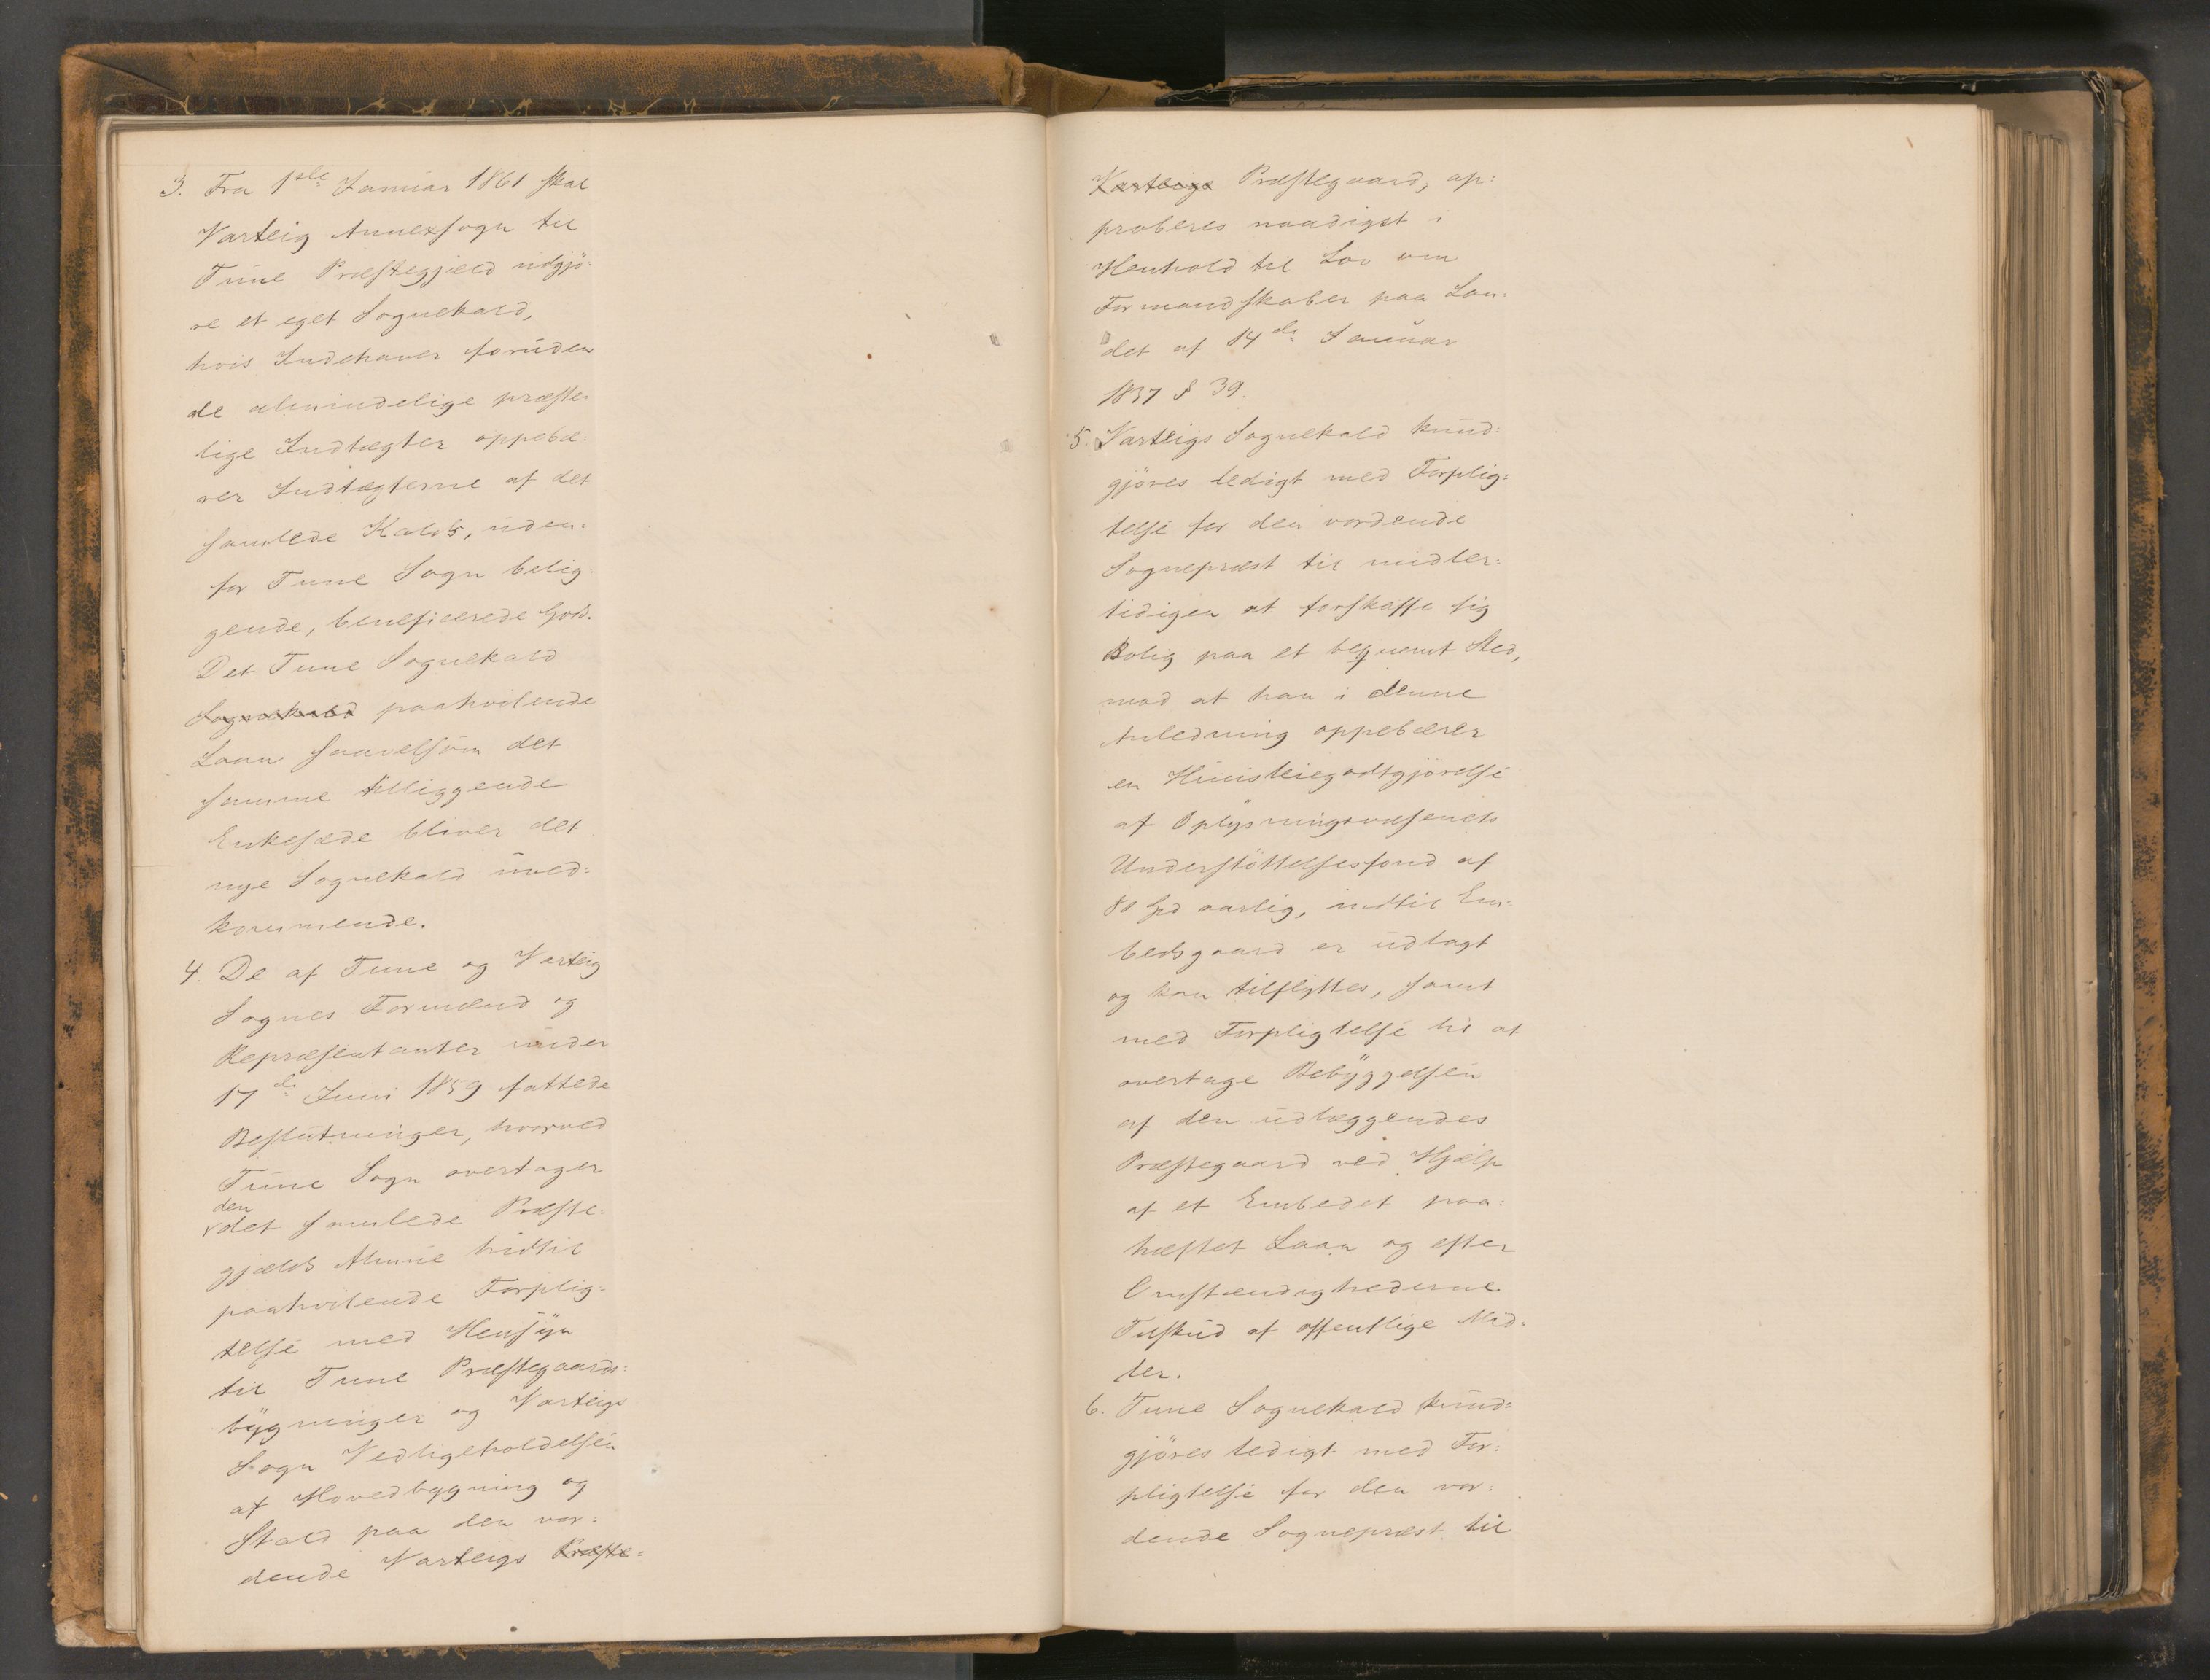 3. Fra 1ste Januar 1861 skal
Varteig Annexsogn til
Tune Præstegjeld udgjö-
re et eget Sognekald,
hvis Indehaver foruden
de almindelige præste-
lige Indtægter oppebæ-
rer Indtægterne af det
samlede Kalds, uden-
for Tune Sogn belig-
gende, beneficerede Gods.
Det Tune Sognekald
Sognekald paahvilende
Laan saavelsom det
samme tilliggende
Enkesæde bliver det
nye Sognekald uved-
kommende.
4. De af Tune og Varteig
Sognes Formænd og
Repræsentanter under
17de Juni 1859 fattede
Beslutninger, hvorved
Tune Sogn overtager
den
det samlede Præste-
gjelds Almue hidtil
paahvilende Forplig-
telse med Hensyn
til Tune Præstegaards-
bygninger og Varteigs
Sogn Vedligeholdelsen
af Hovedbygning og
Stald paa den vor-
dende Varteigs Præste-
Varteigs Præstegaard, ap-
proberes naadigst i
Henhold til Lov om
Formandskaber paa Lan-
det af 14de Januar
1837 § 39.
5. Varteigs Sognekald kund-
gjöres ledigt med Forplig-
telse for den vordende
Sognepræst til midler-
tidigen at forskaffe sig
Bolig paa et beqvemt Sted,
mod at han i denne
Anledning oppebærer
en Huusleiegodtgjörelse
af Oplysningsvæsenets
Understöttelsesfond af
80 Spd aarlig, indtil Em-
bedsgaard er udlagt
og kan tilflyttes, samt
med Forpligtelse til at
overtage Bebyggelsen
af den udlæggendes
Præstegaard ved Hjælp
af et Embedet paa-
hæftet Laan og efter
Omstændighederne
Tilskud af offentlige Mid-
ler.
6. Tune Sognekald kund-
gjöres ledigt med For-
pligtelse for den vor-
dende Sognepræst til